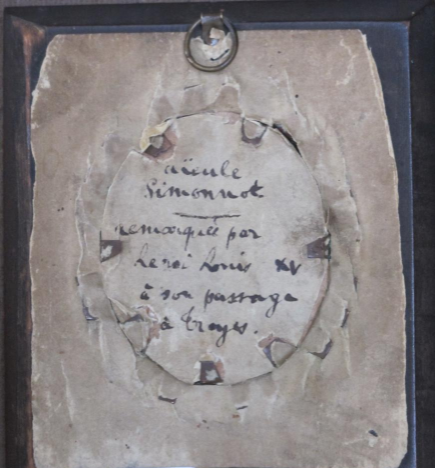 aïeule
Simonnot
remarquée par
le roi Louis XV
à son passage
à Troyes.